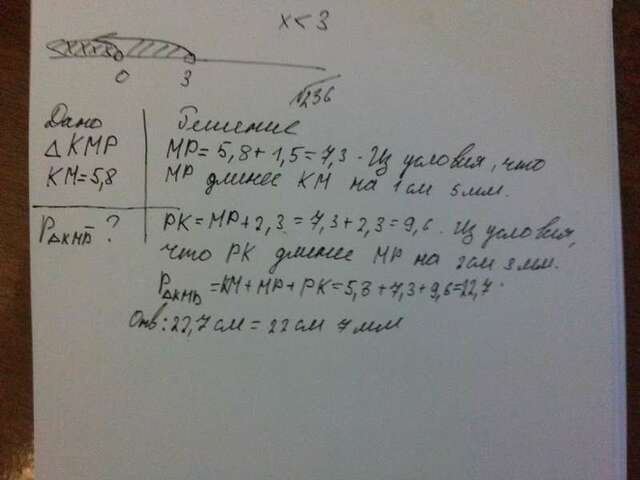 x < 3
0 3
√236
Дано
Решение
△ KMP
MP = 5,8 + 1,5 = 7,3. Из условия, что
KM = 5,8
MP длинее KM на 1 см 5 мм.
P△KMP - ?
PK = MP + 2,3 = 7,3 + 2,3 = 9,6. Из условия,
что PK длинее MP на 2 см 3 мм.
P△KMP = KM + MP + PK = 5,8 + 7,3 + 9,6 = 22,7.
Отв: 22,7 см = 22 см 7 мм